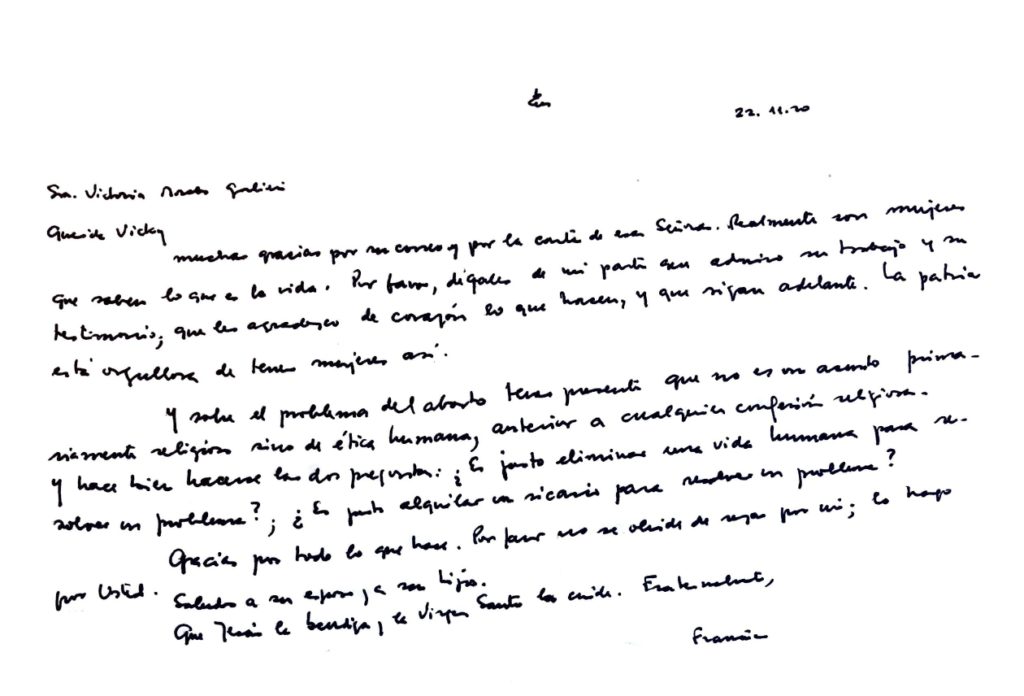 22.11.20
Sra. Victoria Morales Gorleri
Querida Vicky
muchas gracias por su correo y por la carta de esas Señoras. Realmente son mujeres
que saben lo que es la vida. Por favor, dígales de mi parte que admiro su trabajo y su
testimonio; que les agradezco de corazón lo que hacen, y que sigan adelante. La patria
está orgullosa de tener mujeres así.
Y sobre el problema del aborto tener presente que no es un asunto prima-
riamente religioso sino de ética humana, anterior a cualquier confesión religiosa.
Y hace bien hacerse las dos preguntas: ¿Es justo eliminar una vida humana para re-
solver un problema?; ¿Es justo alquilar un sicario para resolver un problema?
Gracias por todo lo que hace. Por favor no se olvide de rezar por mí; lo hago
por Usted.
Saludos a su esposo y a sus hijos.
Que Jesús la bendiga y la Virgen Santa la cuide. Fraternalmente,